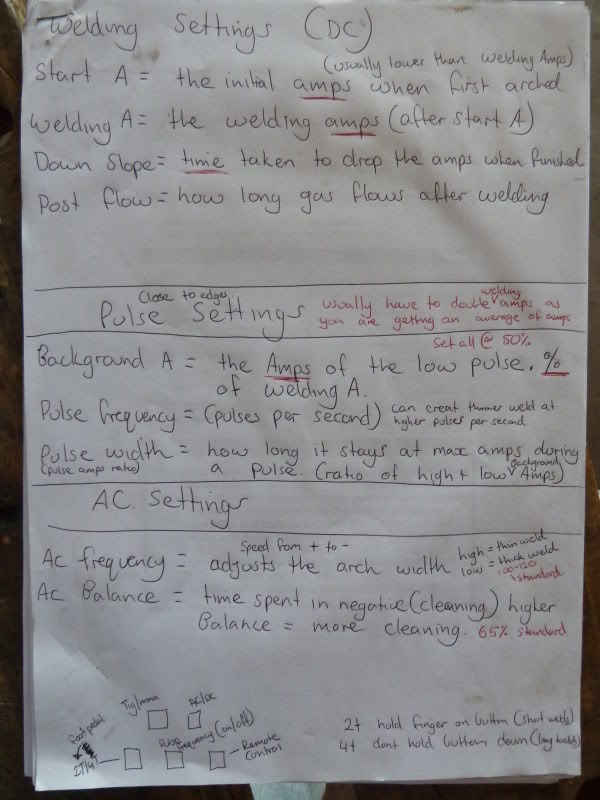 Welding Settings (DC)
(usually lower than welding Amps)
Start A = the initial amps when first arched
Welding A = the welding amps (after start A)
Down Slope = time taken to drop the amps when finished
Post flow = how long gas flows after welding
Close to edges
Pulse Settings
usually have to double welding amps as
you are getting an average of amps
Set all @ 50%
Background A = the Amps of the low pulse. %
of welding A.
Pulse frequency = (pulses per second) can creat thinner weld at
higher pulses per second
Pulse width = how long it stays at max amps during
(pulse amps ratio) a pulse. (ratio of high + low Background Amps)
AC. Settings
Speed from + to -
AC frequency = adjusts the arch width high = thin weld
low = thick weld
100-120
standard.
AC Balance = time spent in negative (cleaning) higher
Balance = more cleaning. 65% standard
Tig/mma
AC/DC
foot pedal
2T/4T
Pulse frequency (on/off)
Remote
Control
2t hold finger on button (short welds)
4t dont hold button down (long welds)